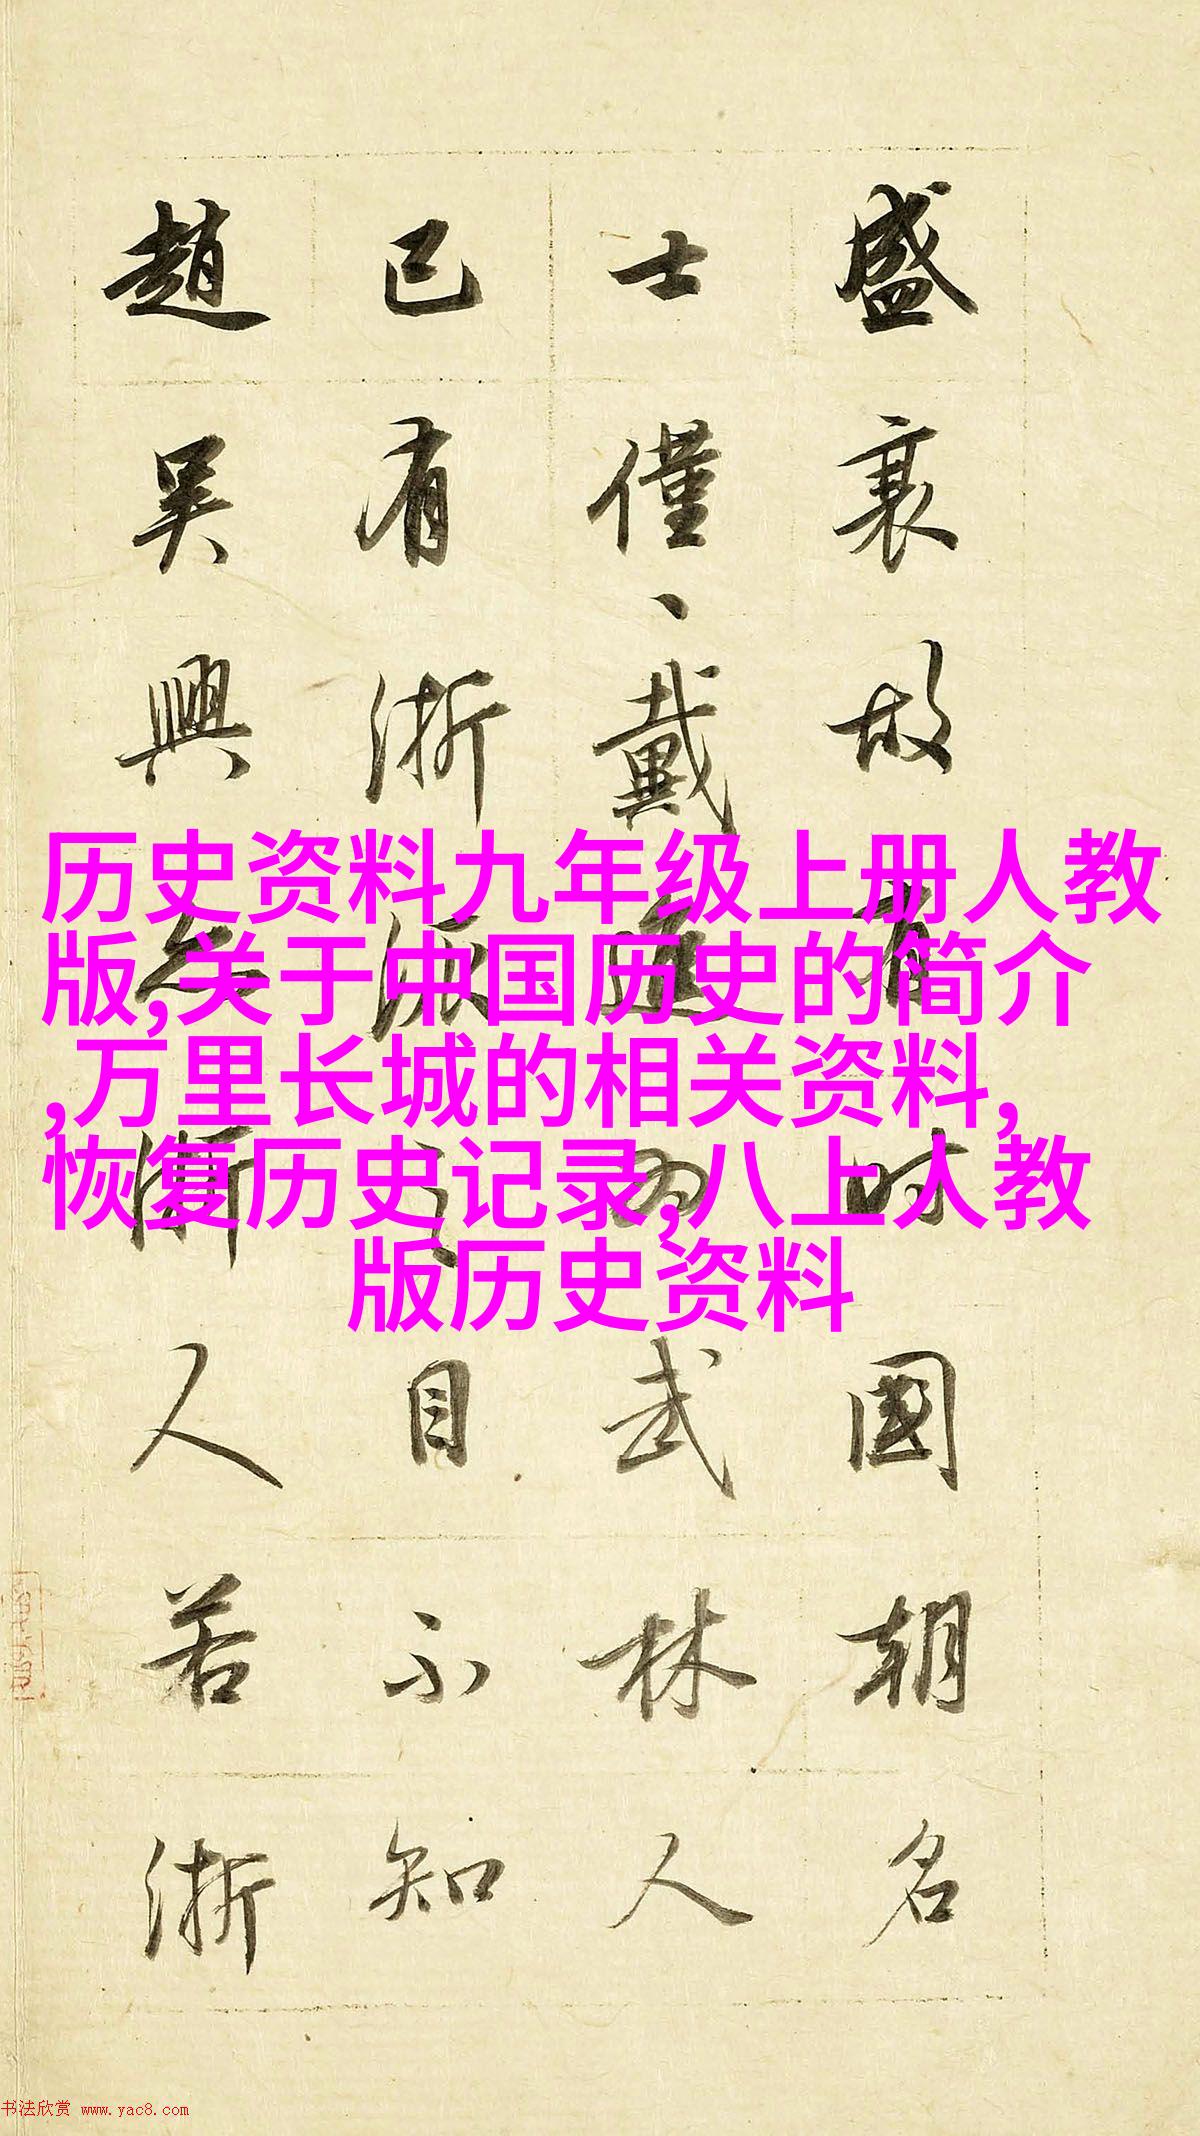 盛衰故有时國朝名
士僅、戴進为武林人
已有浙派之目不知
趙吴興亦浙人若浙
历史资料九年级上册人教
版,关于中国历史的简介
,万里长城的相关资料,
恢复历史记录,八上人教
版历史资料
书法欣赏 www.yac8.com